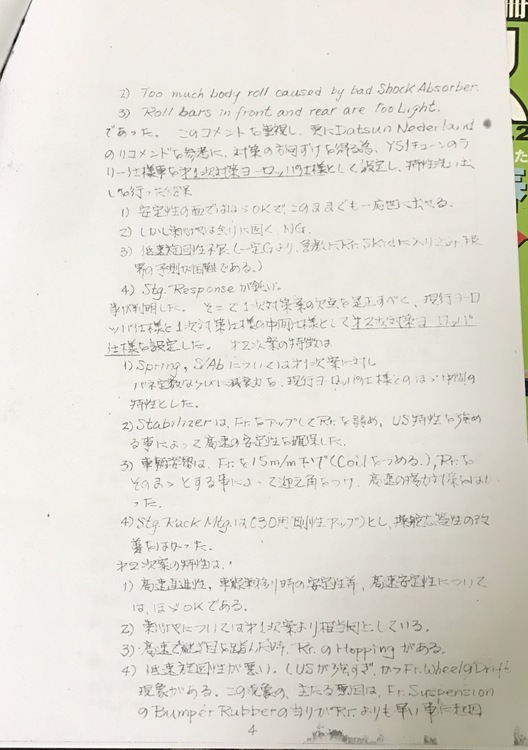 2) Too much body roll caused by bad Shock Absorber.
3) Roll bars in front and rear are too Light.
であった。このコメントを重視し、更にDatsun Nederland
のリコメンドを参考に、対策の方向ずけを得る為、Y51チューンのラ
リー仕様車を第1次対策ヨーロッパ仕様として設定し、特性洗い出
しを行った結果
1) 安定性の面ではほゞOKで、このままでも一応
2) しかし乗心地は余りに固く NG.
3) 低速旋回性不良(一定Gより、急激にRr. Skidに入り込み、限
界の予測が困難である。)
4) Stg. Responseが鈍い。
事が判明した。そこで1次対策案の欠点を是正すべく、現行ヨーロ
ッパ仕様と1次対策仕様の中間仕様として第2次対策ヨーロッパ
仕様を設定した。第2次案の特徴は
1) Spring, S/Abについては第1次案に対し
バネ定数ならびに減衰力を、現行ヨーロッパ仕様とのほゞ中間の
特性とした。
2) Stabilizerは、Fr.をアップしてRr.を弱め、US特性を強め
る事によって高速の安定性を確保した。
3) 車輌姿勢は、Fr.を15m/m下げ(Coilをつめる。)、Rr.を
そのまゝとする事によって迎え角をつけ、高速の揚力対策をはか
った。
4) Stg. Rack Mtg.は(30円 剛性アップ)とし、操舵応答性の改
善をはかった。
第2次案の特性は、
1) 高速直進性、車線乗移り時の安定性等、高速安定性について
は、ほゞOKである。
2) 乗心地については第1次案より相当向上している。
3) 高速で継ぎ目を踏んだ時、Rr.のHoppingがある。
4) 低速旋回性が悪い。(USが強すぎ、かつFr. WheelのDrift
現象がある。この現象の、主たる要因は、Fr. Suspension
のBumper Rubberの当りがRr.よりも早い事に起因
4